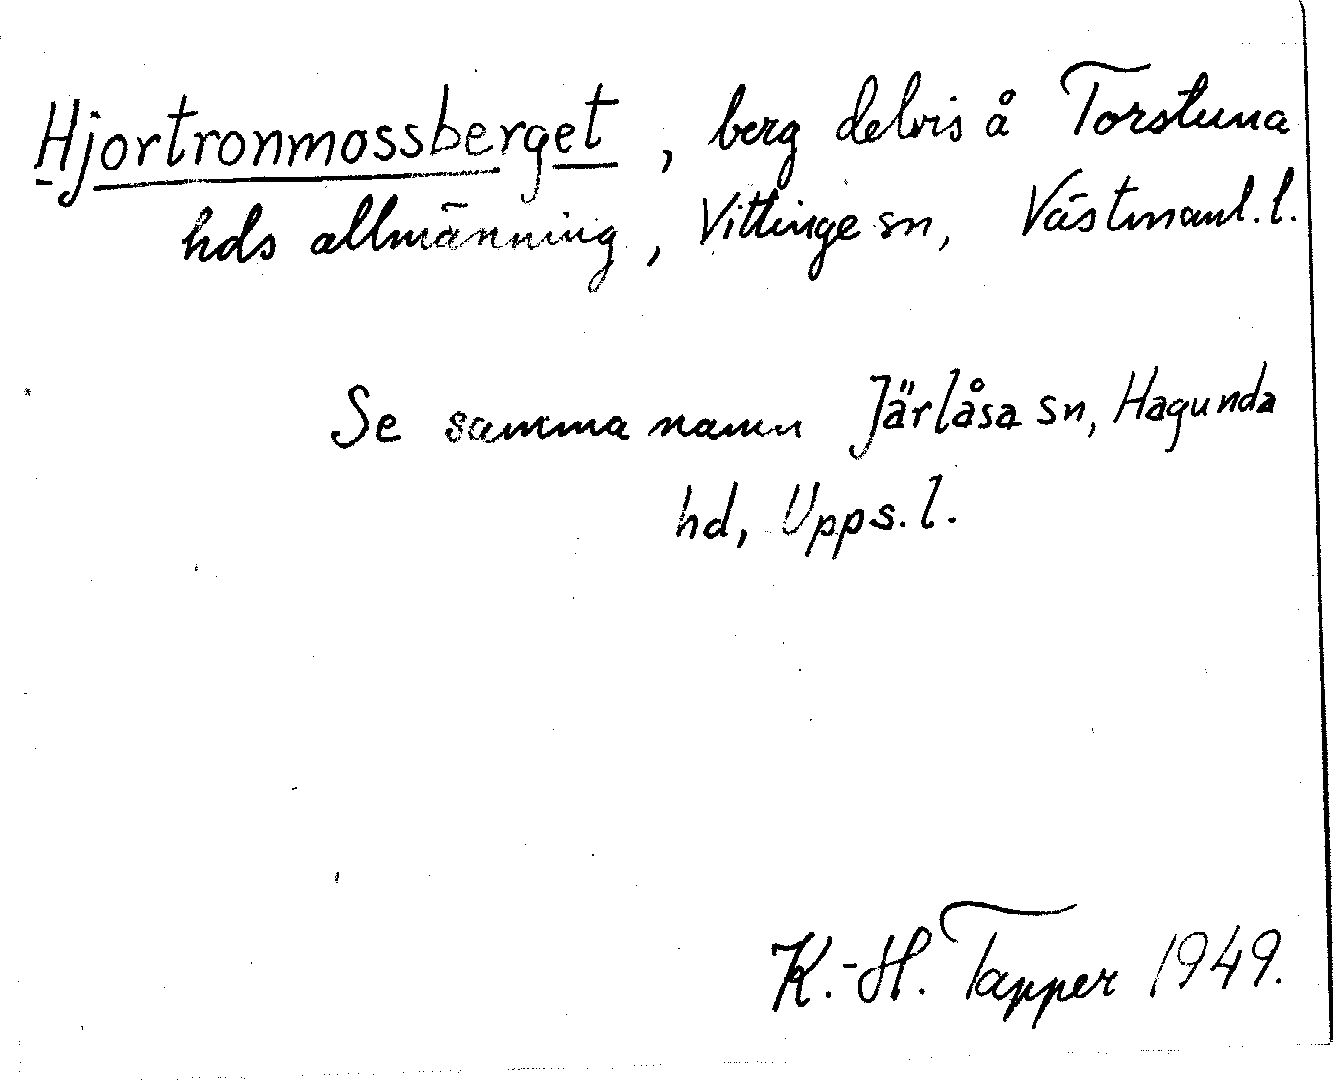 Hjortronmossberget, berg delvis å Torstuna
hds allmänning, Vittinge sn, Västmanl. l.
Se samma namn Järlåsa sn, Hagunda
hd, Upps. l.
K.-H. Tapper 1949.